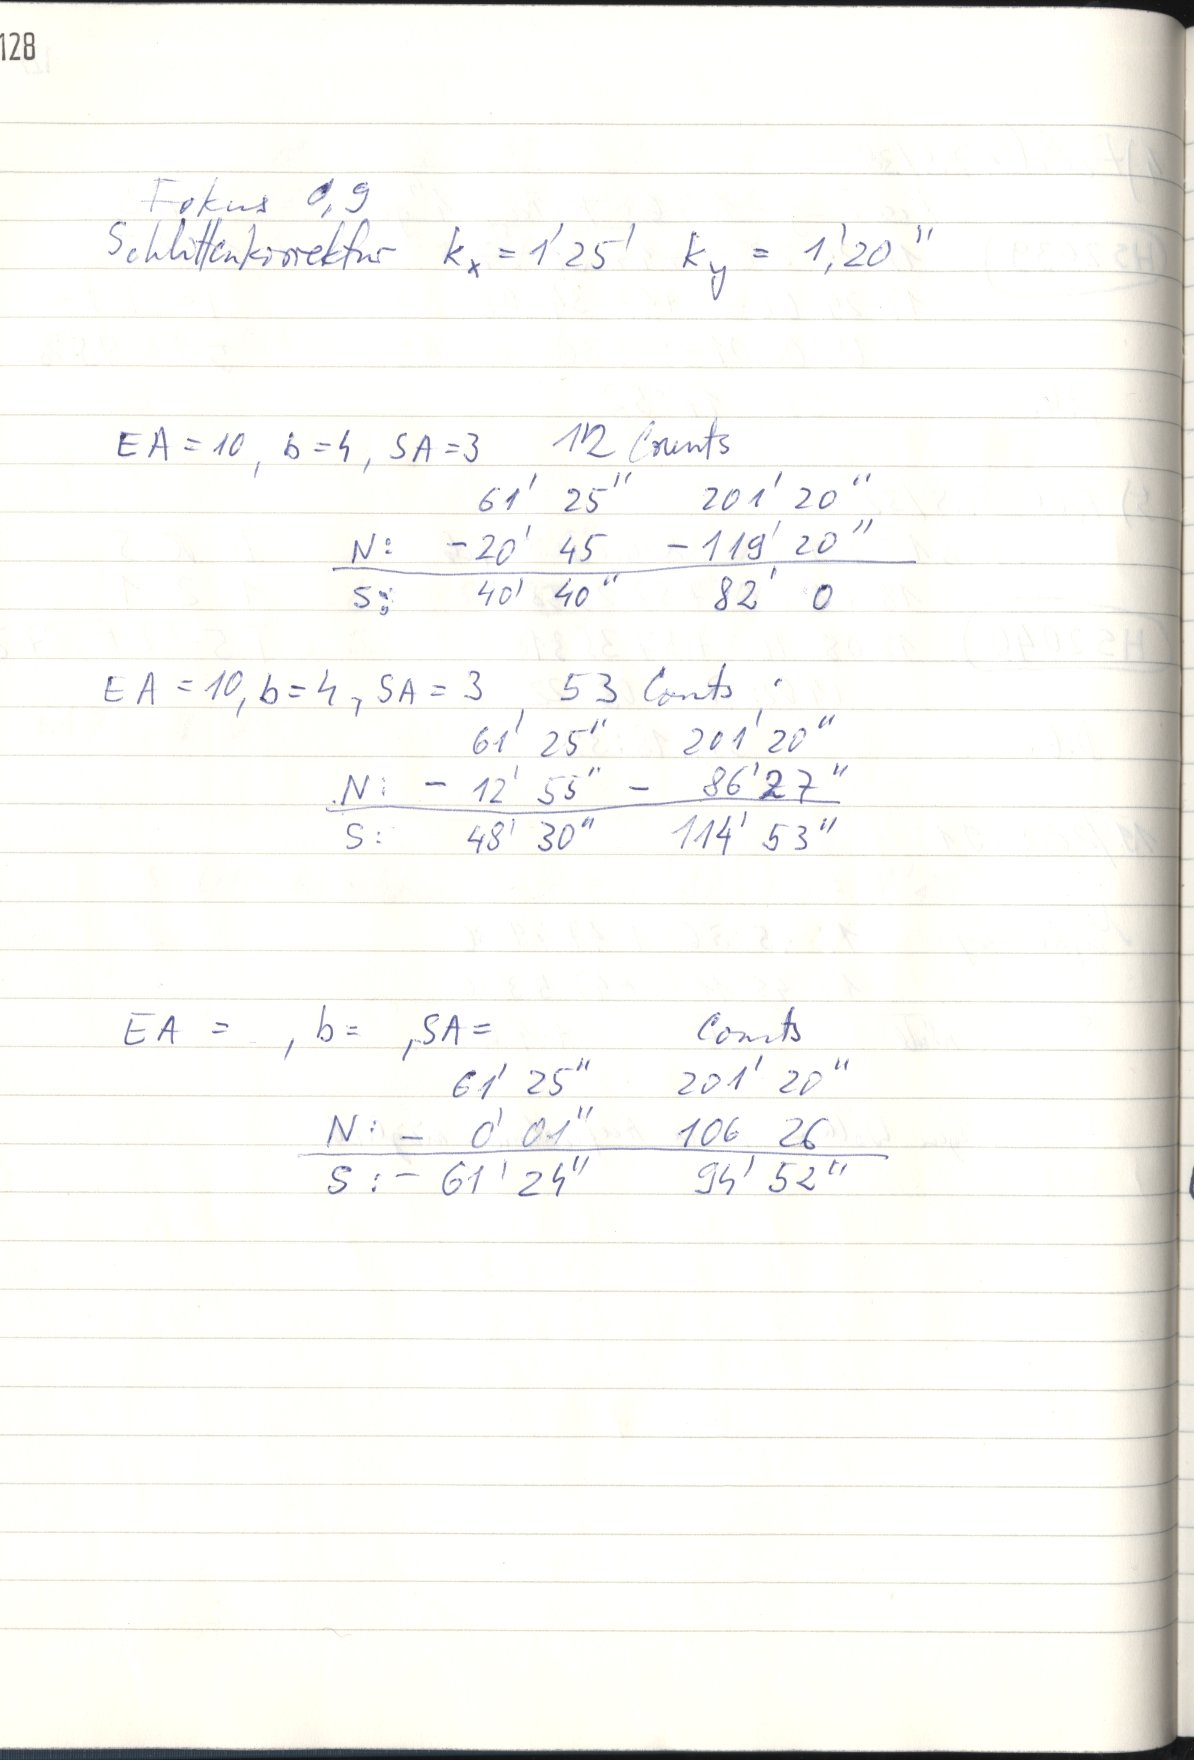 128
Fokus 0,9
Schlittenkorrektur kx = 1' 25' ky = 1,' 20"
EA = 10, b = 4, SA = 3 12 Counts
61' 25" 201' 20"
N: - 20' 45 - 119' 20"
S: 40' 40" 82' 0
EA = 10, b = 4, SA = 3 53 Counts
61' 25" 201' 20"
N: - 12' 55" - 86' 27"
S: 48' 30" 114' 53"
EA = , b = , SA = Counts
61' 25" 201' 20"
N: - 0' 01" 106 26
S: - 61' 24" 94' 52"